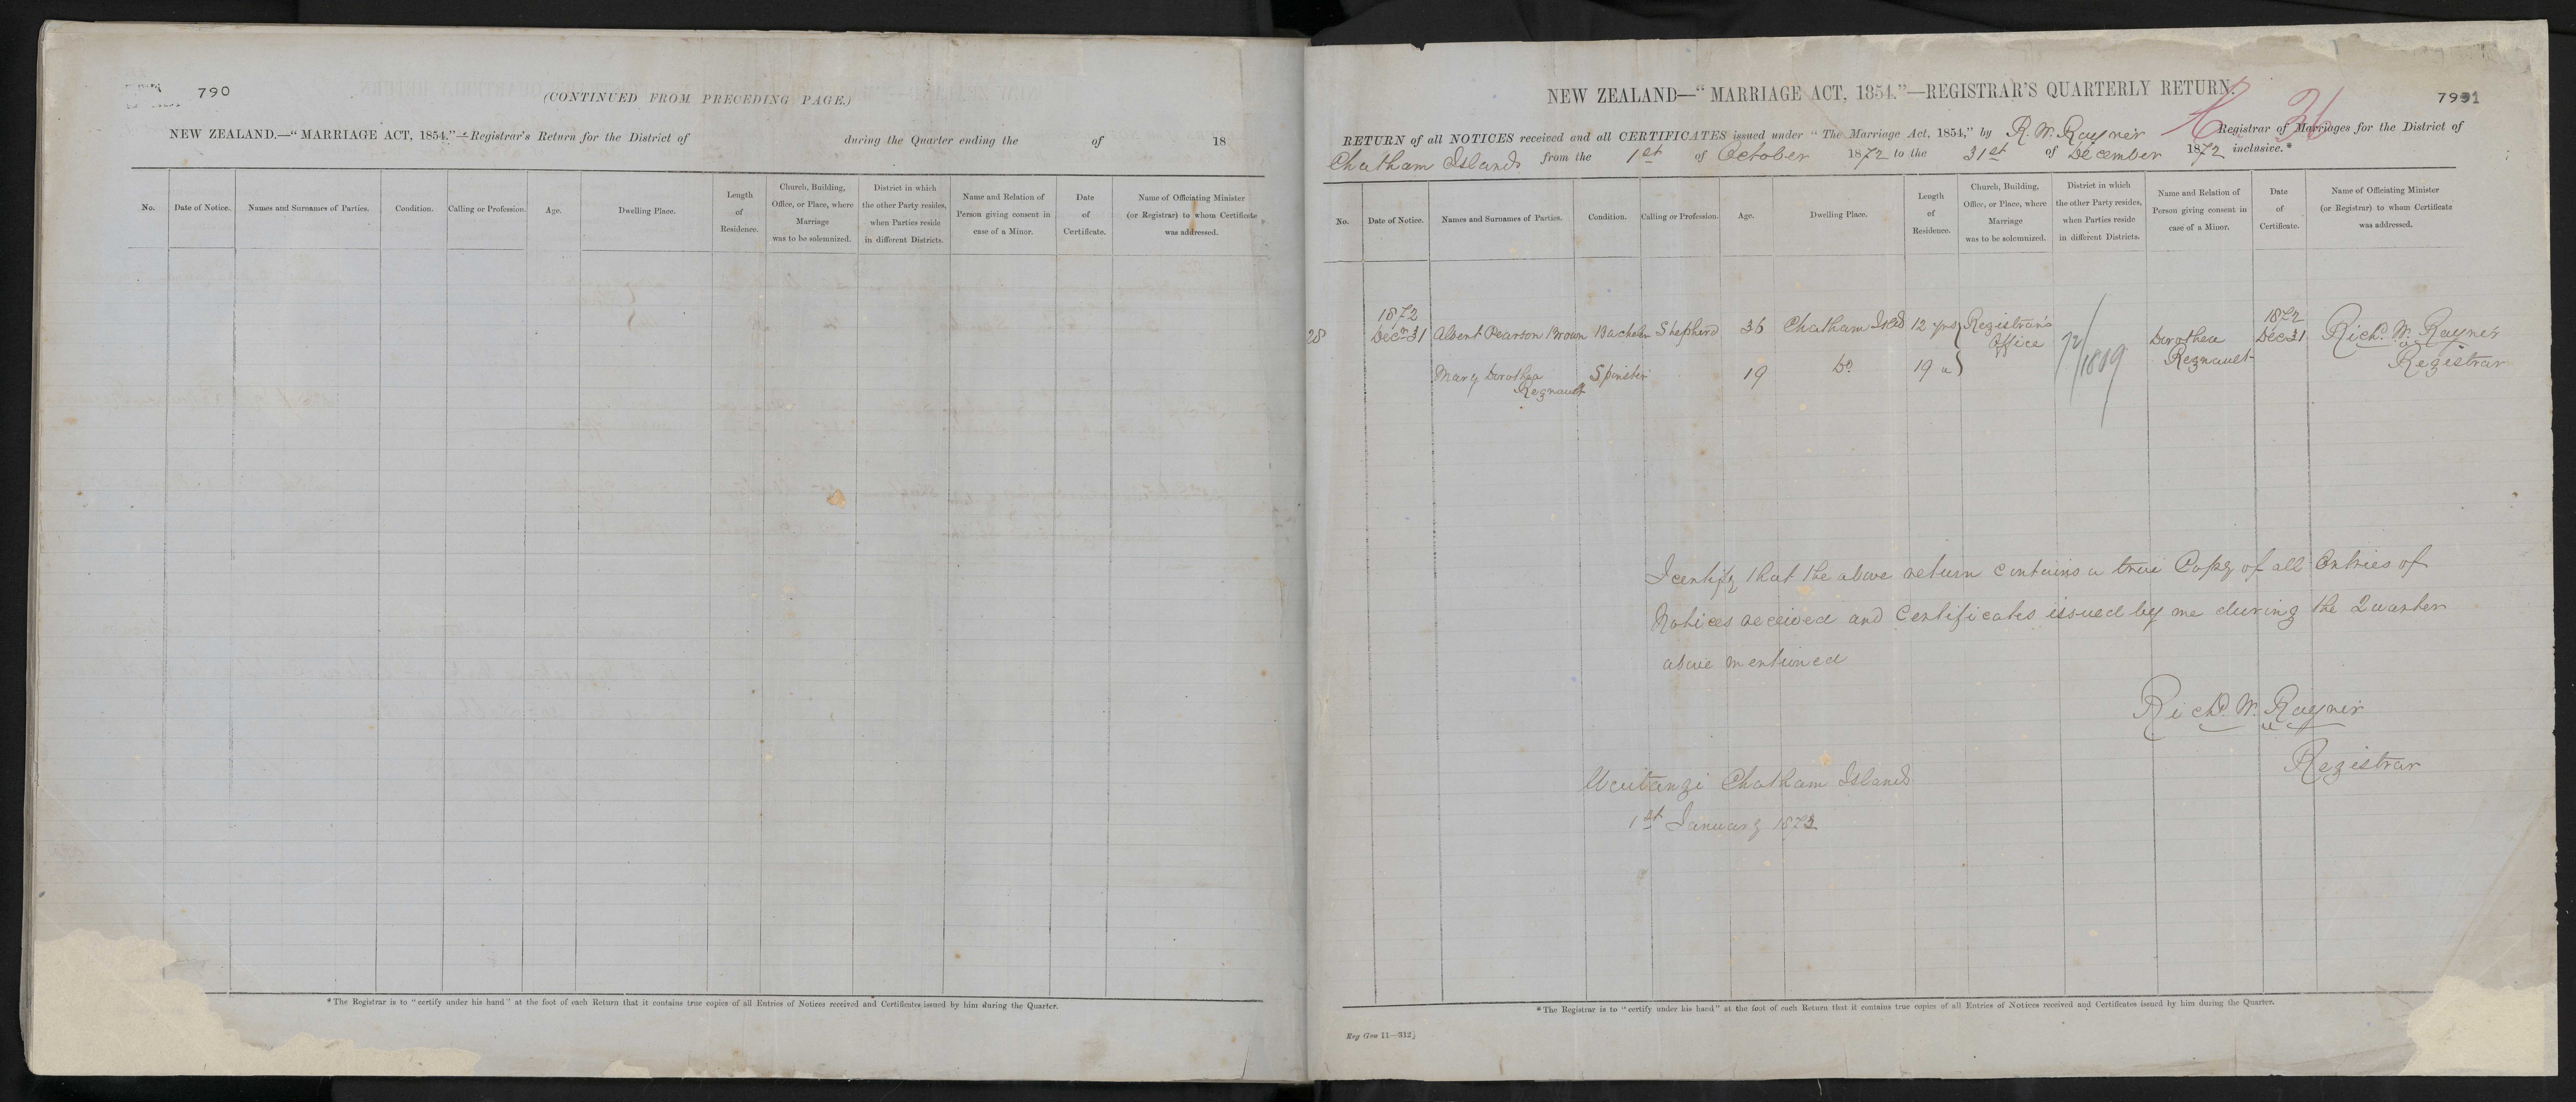 790
(CONTINUED FROM PRECEDING PAGE.)
NEW ZEALAND.—“MARRIAGE ACT, 1854.”—Registrar's Return for the District of during the Quarter ending the of 18
No.
Date of Notice.
Names and Surnames of Parties.
Condition.
Calling or Profession.
Age.
Dwelling Place.
Length
of
Residence.
Church, Building,
Office, or Place, where
Marriage
was to be solemnized.
District in which
the other Party resides,
when Parties reside
in different Districts.
Name and Relation of
Person giving consent in
case of a Minor.
Date
of
Certificate.
Name of Officiating Minister
(or Registrar) to whom Certificate
was addressed.
*The Registrar is to “certify under his hand” at the foot of each Return that it contains true copies of all Entries of Notices received and Certificates issued by him during the Quarter.
NEW ZEALAND—“MARRIAGE ACT, 1854.”—REGISTRAR'S QUARTERLY RETURN.
36
RETURN of all NOTICES received and all CERTIFICATES issued under “The Marriage Act, 1854,” by R. W. Rayner Registrar of Marriages for the District of
Chatham Islands from the 1st of October 1872 to the 31st of December 1872 inclusive.*
No.
Date of Notice.
Names and Surnames of Parties.
Condition.
Calling or Profession.
Age.
Dwelling Place.
Length
of
Residence.
Church, Building,
Office, or Place, where
Marriage
was to be solemnized.
District in which
the other Party resides,
when Parties reside
in different Districts.
Name and Relation of
Person giving consent in
case of a Minor.
Date
of
Certificate.
Name of Officiating Minister
(or Registrar) to whom Certificate
was addressed.
1872 1872
28 Decr 31 Albert Pearson Brown Bachelr Shepherd 36 Chatham Islds 12 yrs Registrar's Dorothea Dec 31 Richd. W. Rayner
Office 72/1809 Regnault Registrar
Mary Dorothea Spinster 19 Do 19 "
Regnault
I certify that the above return contains a true Copy of all Entries of
Notices received and Certificates issued by me during the Quarter
above mentioned
Richd. W. Rayner
Registrar
Waitangi Chatham Islands
1st January 1873
*The Registrar is to “certify under his hand” at the foot of each Return that it contains true copies of all Entries of Notices received and Certificates issued by him during the Quarter.
Reg Gen 11—312}